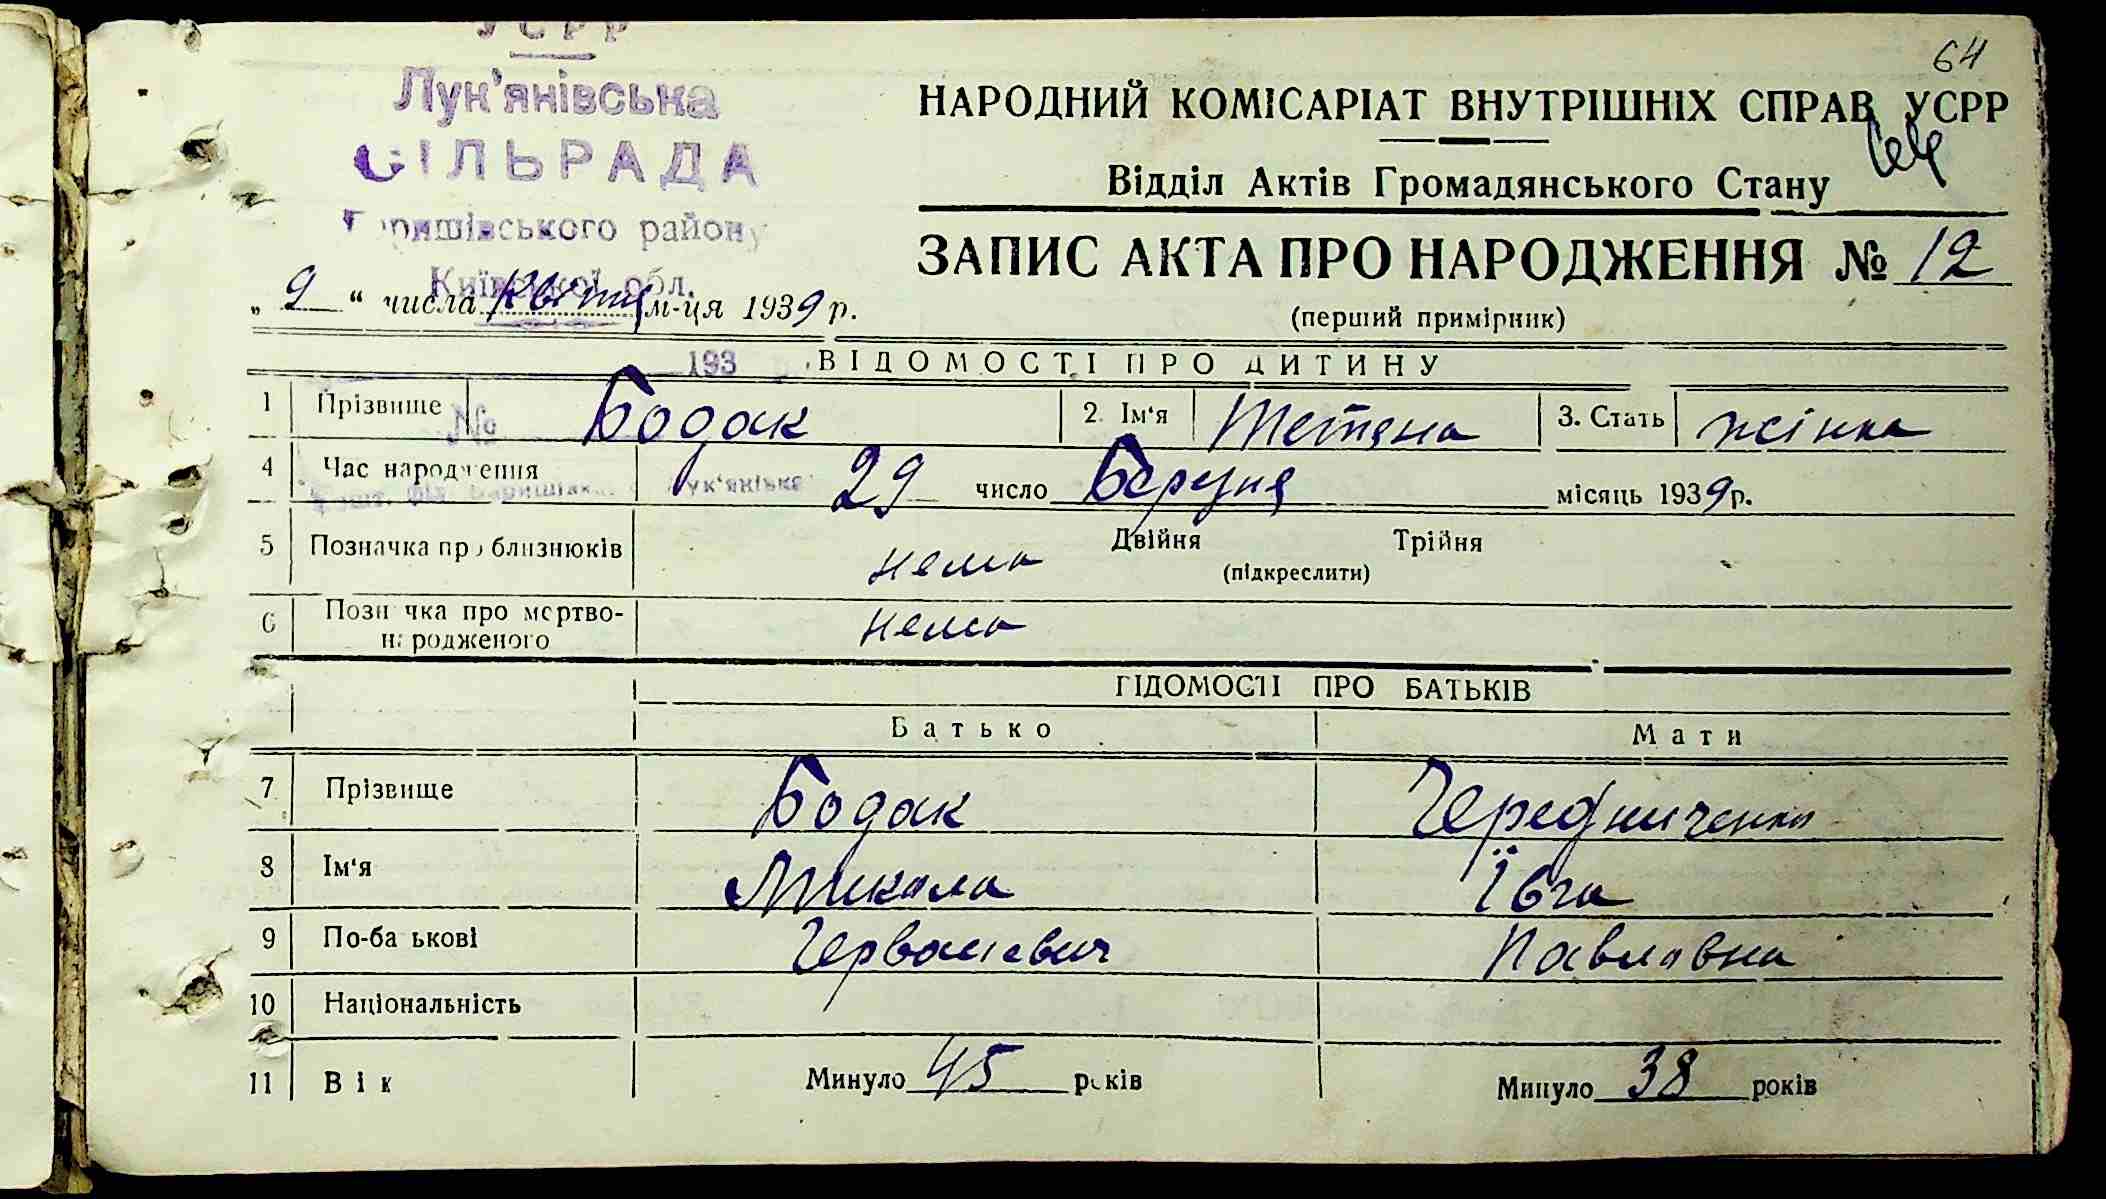 64
УСРР
Лук'янівська
СІЛЬРАДА
району
Київської обл.
НАРОДНИЙ КОМІСАРІАТ ВНУТРІШНІХ СПРАВ УСРР
Відділ Актів Громадянського Стану
ЗАПИС АКТА ПРО НАРОДЖЕННЯ № 12
(перший примірник)
„ 9 “ числа Квітня м-ця 1939 р.
193
ВІДОМОСТІ ПРО ДИТИНУ
1 Прізвище Бодак 2. Ім'я Тетяна 3. Стать жінка
№
4 Час народження 29 число Березня місяць 1939 р.
5 Позначка про близнюків нема Двійня Трійня
(підкреслити)
6 Позначка про мертво-
народженого нема
ВІДОМОСТІ ПРО БАТЬКІВ
Батько Мати
7 Прізвище Бодак Чередниченко
8 Ім'я Микола Ївга
9 По-батькові Павловна
10 Національність
11 Вік Минуло 45 років Минуло 38 років